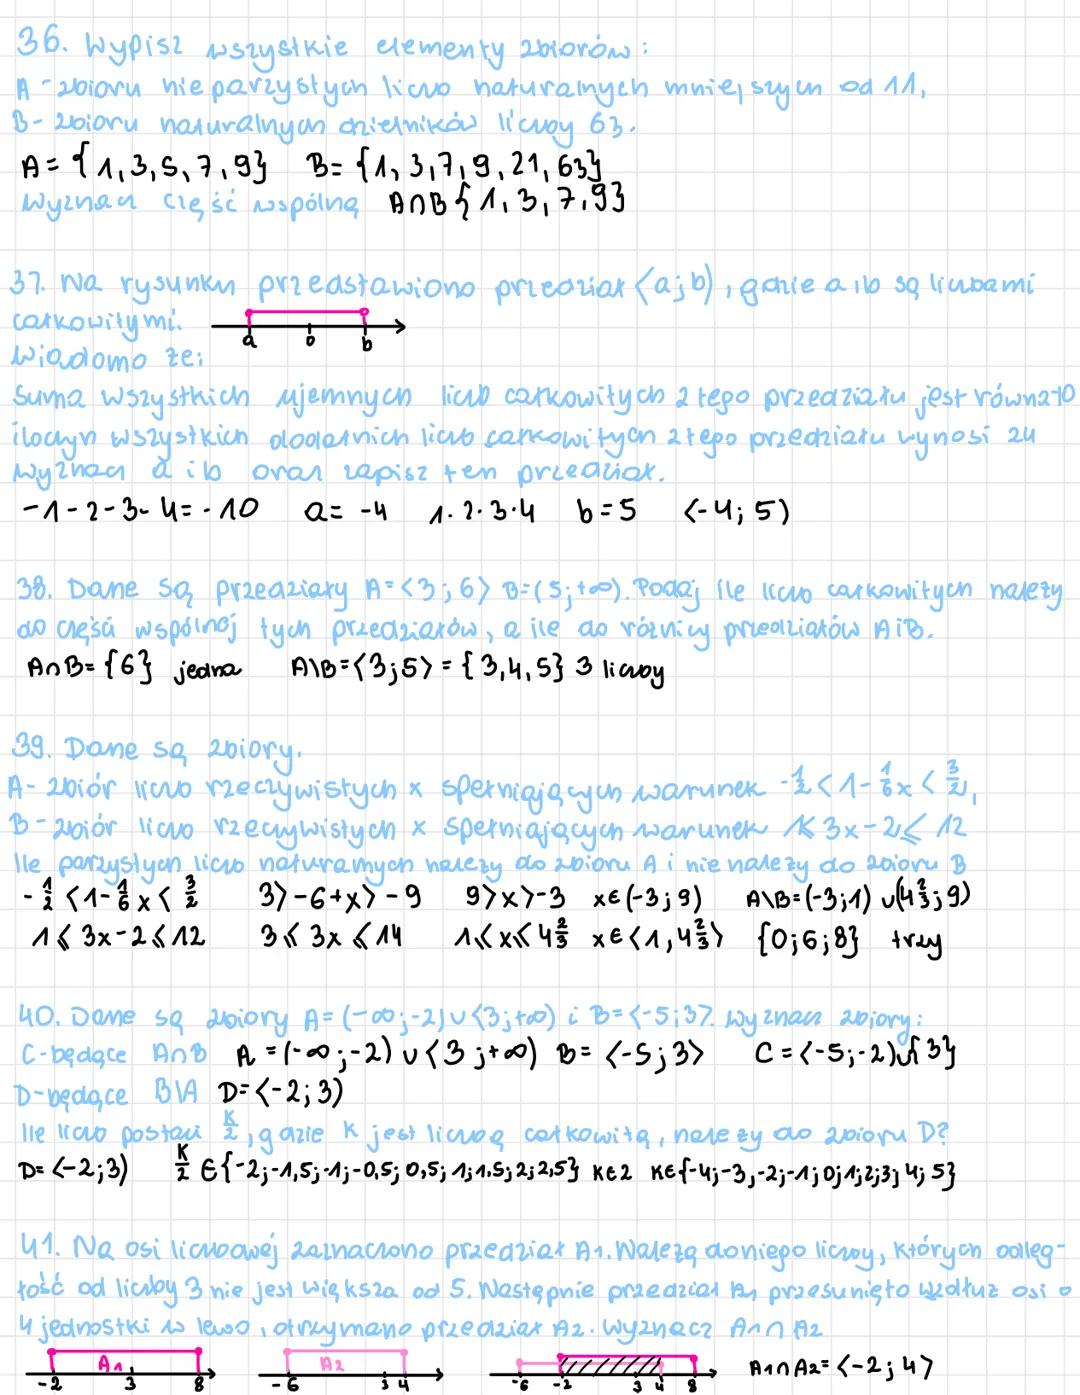 36. Wypisz wszystkie elementy zbiorów:
A - zbioru nie parzystych liczb naturalnych mniejszych od 11,
B - zbioru naturalnych dzielników liczby 63.
A = {1,3,5,7,9} B = {1,3,7,9,21,63}
Wyznacz część wspólną A∩B {1,3,7,9}
37. Na rysunku przedstawiono przedział <a;b), gdzie a i b są liczbami
całkowitymi.
a 0 b
Wiadomo że:
Suma wszystkich ujemnych liczb całkowitych z tego przedziału jest równa -10
iloczyn wszystkich dodatnich liczb całkowitych z tego przedziału wynosi 24
wyznacz a i b oraz zapisz ten przedział.
-1-2-3-4=-10 a=-4 1·2·3·4 b=5 <-4;5)
38. Dane są przedziały A=<3;6> B=(5;+∞). Podaj ile liczb całkowitych należy
do części wspólnej tych przedziałów, a ile do różnicy przedziałów A i B.
A∩B={6} jedna A\B=<3;5>={3,4,5} 3 liczby
39. Dane są zbiory.
A - zbiór liczb rzeczywistych x spełniających warunek -1/2<1-1/6x<3/2,
B - zbiór liczb rzeczywistych x spełniających warunek 1≤3x-2≤12
Ile parzystych liczb naturalnych należy do zbioru A i nie należy do zbioru B
-1/2<1-1/6x<3/2 3>-6+x>-9 9>x>-3 x∈(-3;9) A\B=(-3;1)∪(4 2/3;9)
1≤3x-2≤12 3≤3x≤14 1≤x≤4 2/3 x∈<1,4 2/3> {0;6;8} trzy
40. Dane są zbiory A=(-∞;-2)∪<3;+∞) i B=<-5;3>. Wyznacz zbiory:
C-będące A∩B A=(-∞;-2)∪<3;+∞) B=<-5;3> C=<-5;-2)∪{3}
D-będące B\A D=<-2;3)
Ile liczb postaci K/2, gdzie K jest liczbą całkowitą, należy do zbioru D?
D=<-2;3) K/2 ∈{-2;-1,5;-1;-0,5;0,5;1;1.5;2;2,5} K∈Z K∈{-4;-3,-2;-1;0;1;2;3;4;5}
41. Na osi liczbowej zaznaczono przedział A1. Należą do niego liczby, których odleg-
łość od liczby 3 nie jest większa od 5. Następnie przedział A1 przesunięto wzdłuż osi o
4 jednostki w lewo, otrzymano przedział A2. Wyznacz A1∩A2
A1 A2 A1∩A2=<-2;4>
-2 3 8 -6 3 4 -6 -2 3 4 8